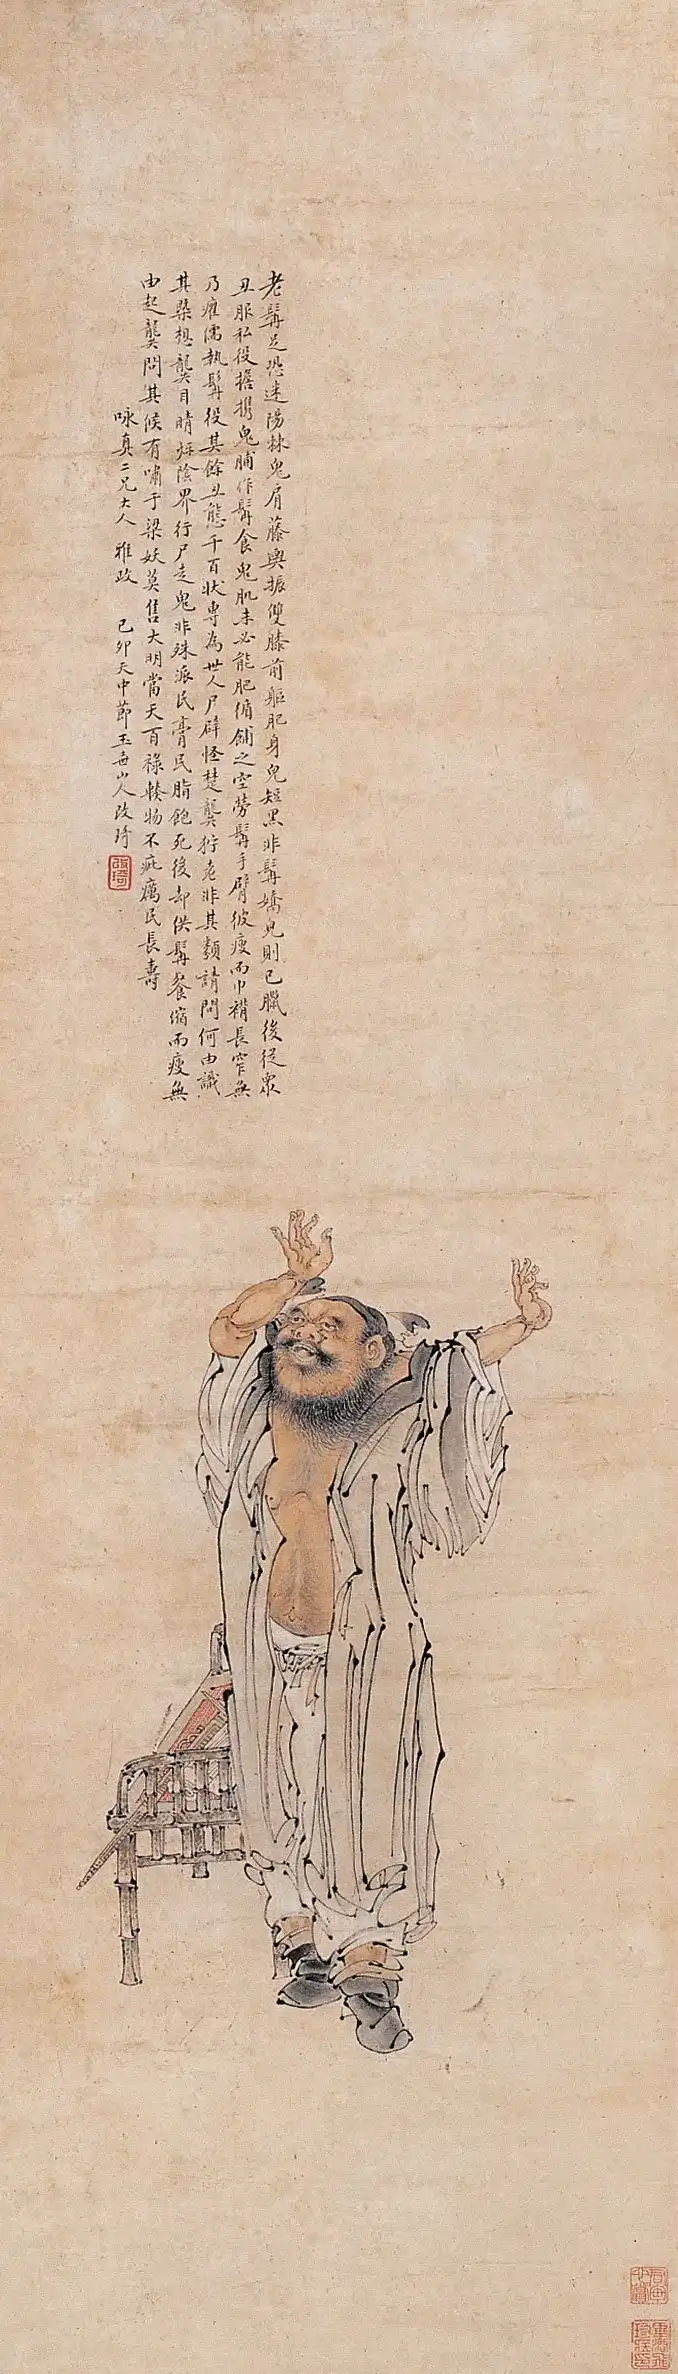 老髯足恐迷陽棘鬼肩藤輿振雙膝前軀肥身兒短黑非髯嬌兒則已臘後從眾
丑服私役擔攜鬼脯作髯食鬼肌未必能肥脩餔之空勞髯手臂彼瘦而巾褙長窄無
乃癯儒執髯役其餘丑態千百狀專為世人尸辟怪楚龔狞老非其類請問何由識
其槩想龔目睛爍陰界行尸走鬼非殊派民膏民脂飽死後却供髯餐縮而瘦無
由起龔問其候有嘯于梁妖莫售大明當天百祿轃物不疵癘民長壽
咏真二兄大人 雅政 己卯天中節玉壺山人改琦
改琦